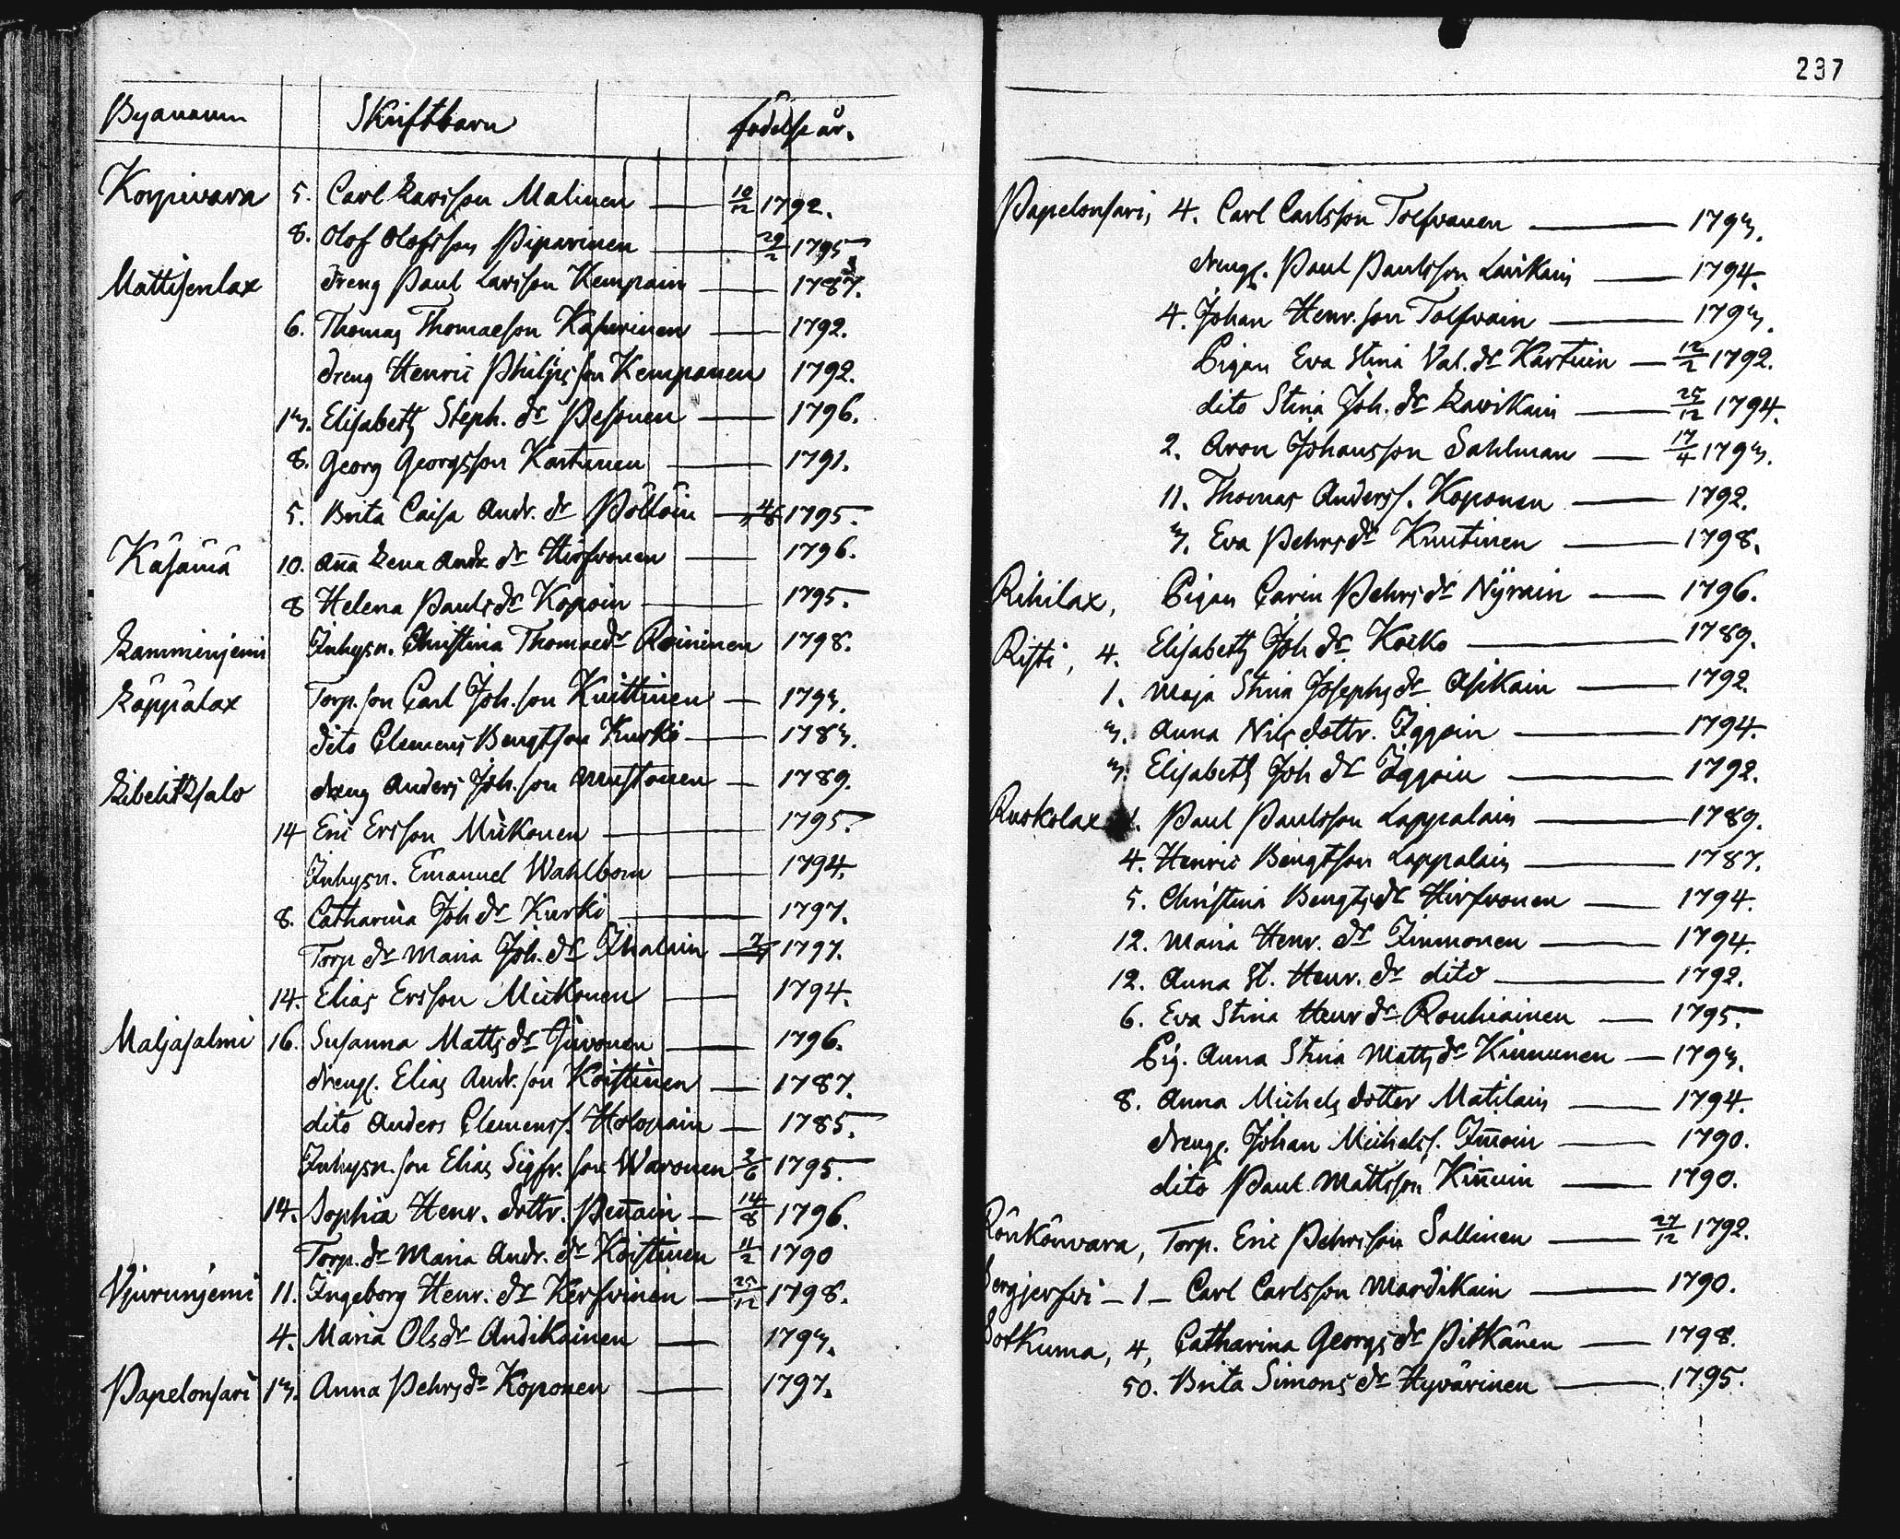 Byanamn Skriftbarn födelse år.
Korpivara 5. Carl Larsson Malinen 10/12 1792.
8. Olof Olofsson Piparinen 29/2 1795
Mattisenlax dreng Paul Larsson Kempain 1787.
6. Thomas Thomasson Kasurinen 1792.
dreng Henric Philipsson Kemponen 1792.
13. Elisabeth Steph. dr Pesonen 1796.
8. Georg Georgsson Kartunen 1791.
5. Brita Caisa Andr. dr Pöllöin 4/8 1795.
Käsämä 10. Aña Lena Andr. dr Hirfvonen 1796.
8 Helena Paulsdr Kopoin 1795.
Lamminjemi Inhysn. Christina Thomaedr Roininen 1798.
Läppälax Torp. son Carl Joh. son Knittinen 1793.
dito Clemens Bengtson Kurki 1783.
Libelitzsalo dreng Anders Joh. son Mustonen 1789.
14 Eric Ersson Miikonen 1795.
Inhysn. Emanuel Wahlbom 1794.
8. Catharina Joh dr Kurki 1797.
Torp dr Maria Joh. dr Ihalain 1797.
14. Elias Ersson Miikonen 1794.
Maljasalmi 16. Susanna Matts dr Juvonen 1796.
drengs. Elias Andr. son Koistinen 1787.
dito Anders Clemenss. Holopain 1785.
Inhysn. son Elias Sigfr. son Waronen 2/6 1795
14. Sophia Henr. dottr. Peñain 14/8 1796.
Torp. dr Maria Andr. dr Koistinen 11/2 1790
Viurunjemi 11. Ingeborg Henr. dr Kerfvinen 25/12 1798.
4. Maria Olsdr Andikainen 1793.
Papelonsari 13. Anna Pehrsdr Koponen 1797.
237
Papelonsari, 4. Carl Carlsson Tolfvanen 1793.
drengs. Paul Paulsson Lavikain 1794.
4. Johan Henr. son Tolfvain 1793.
Pigan Eva Stina Val. dr Kartuin 12/2 1792.
dito Stina Joh. dr Lavikain 25/12 1794.
2. Aron Johansson Sahlman 17/4 1793.
11. Thomas Anderss. Koponen 1792.
3. Eva Pehrsdr Knutinen 1798.
Rihilax, Pigan Carin Pehrs dr Nÿrain 1796.
Risti, 4. Elisabeth Joh dr. Koiko 1789.
1. Maja Stina Josephs dr Asikain 1792.
3. Anna Nils dottr. Iggoin 1794.
3. Elisabeth Joh dr Iggoin 1792.
Ruskolax 1. Paul Paulsson Lappalain 1789.
4. Henric Bengtson Lappalain 1787.
5. Christina Bengtsdr Hirfvonen 1794.
12. Maria Henr. dr Immonen 1794.
12. Anna St. Henr. dr dito 1792.
6. Eva Stina Henr dr Rouhiainen 1795.
Pig. Anna Stina Matts dr Kinnunen 1793.
8. Anna Michels dotter Matilain 1794.
drengs. Johan Michelss. Im̄oin 1790.
dito Paul Mattsson Kiñuin 1790.
Rönkönvara, Torp. Eric Pehrsson Sallinen 27/12 1792.
Sorgjerfvi 1 Carl Carlsson Mardikain 1790.
Sotkuma, 4, Catharina Georgs dr Pitkänen 1798.
50. Brita Simons dr Hyvärinen 1795.